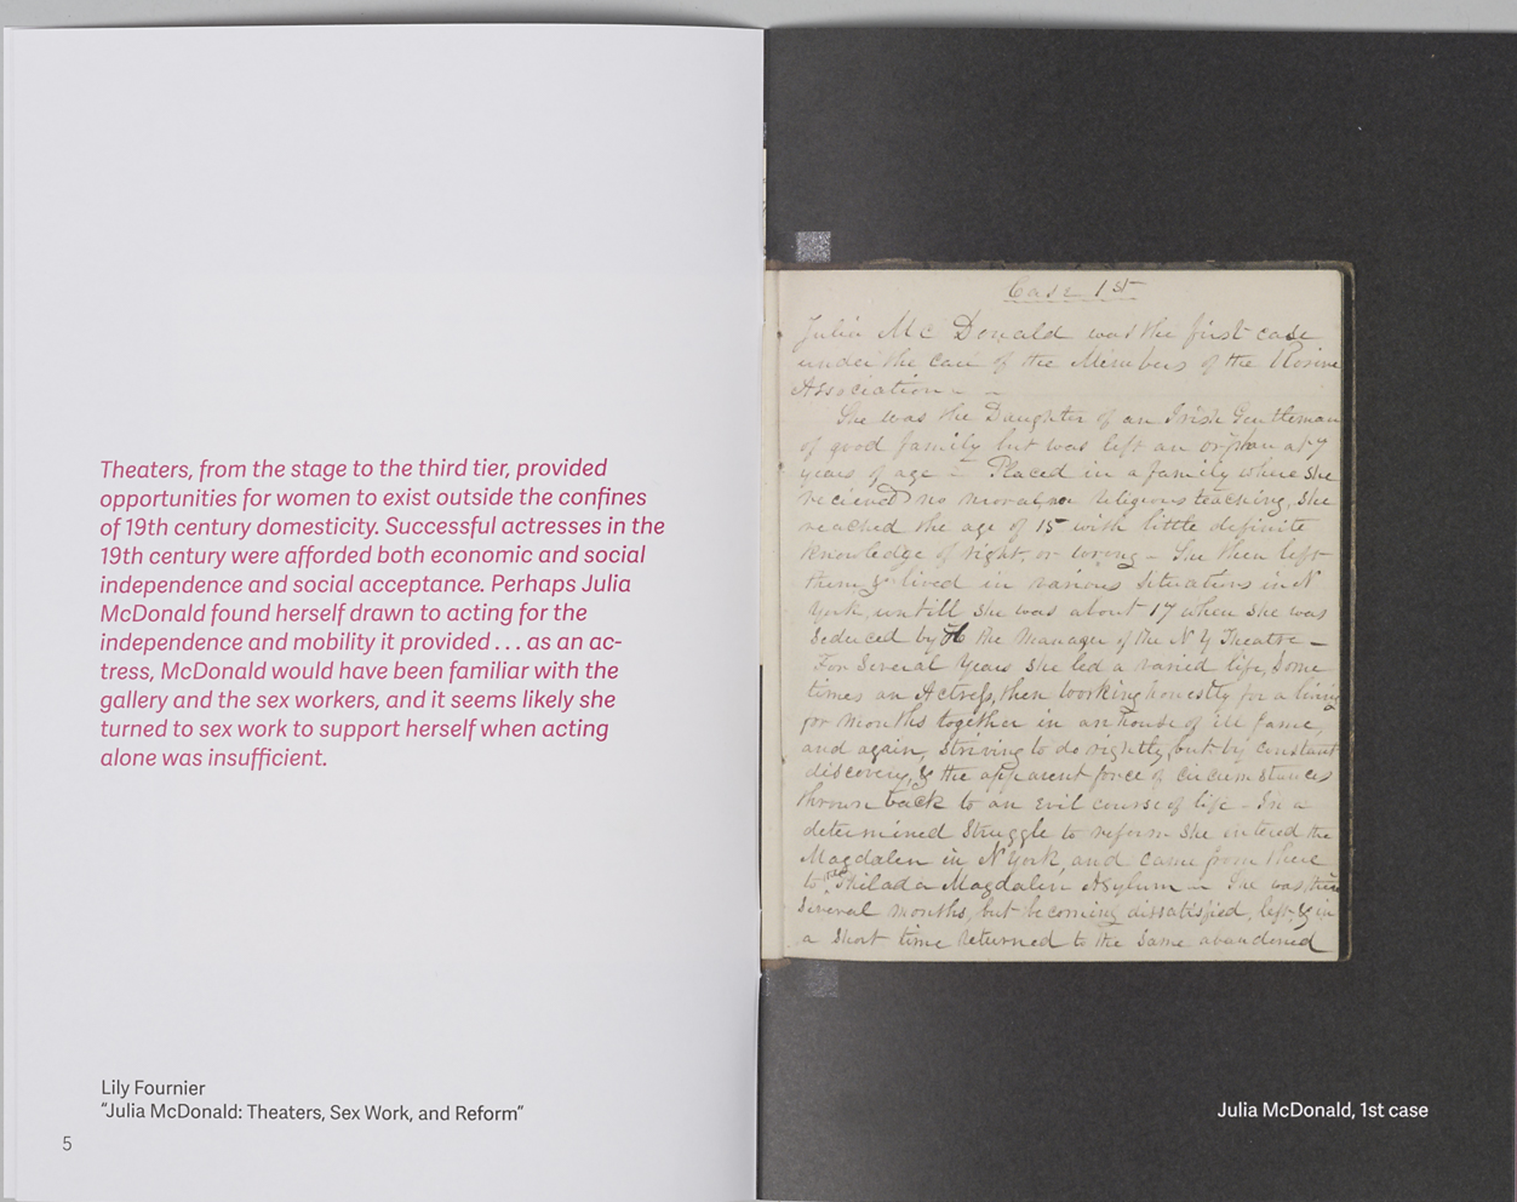 Theaters, from the stage to the third tier, provided
opportunities for women to exist outside the confines
of 19th century domesticity. Successful actresses in the
19th century were afforded both economic and social
independence and social acceptance. Perhaps Julia
McDonald found herself drawn to acting for the
independence and mobility it provided . . . as an ac-
tress, McDonald would have been familiar with the
gallery and the sex workers, and it seems likely she
turned to sex work to support herself when acting
alone was insufficient.
Lily Fournier
“Julia McDonald: Theaters, Sex Work, and Reform”
5
Case 1st
Julia Mc Donald was the first case
under the care of the Members of the Rosine
Association
She was the Daughter of an Irish Gentleman
of good family but was left an orphan at 7
years of age - Placed in a family where she
recieved no moral, nor religious teaching, she
reached the age of 15 with little definite
knowledge of right, or wrong - She then left
them, & lived in various situations in N
York, untill she was about 17 when she was
seduced by the Manager of the N Y Theatre -
For several years she led a varied life, some
times an Actress, then working honestly for a living
for months together in an house of ill fame,
and again, striving to do rightly, but by constant
discovery, & the apparent force of circumstances
thrown back to an evil course of life - In a
determined struggle to reform she entered the
Magdalen in N York, and came from there
to the Philada Magdalen Asylum - She was there
several months, but becoming dissatisfied, left, & in
a short time returned to the same abandoned
Julia McDonald, 1st case